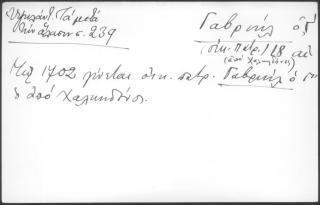 Υψηλάντ. Τὰ μετὰ
τὴν ἅλωσιν σ. 239
Γαβριὴλ ὁ Γ΄
οἰκ. πατρ. 18 αι
(ἀπὸ Χαλκηδόνος)
Τῷ 1702 γίνεται οἰκ. πατρ. Γαβριὴλ ὁ Γ΄
ὁ ἀπὸ Χαλκηδόνος.